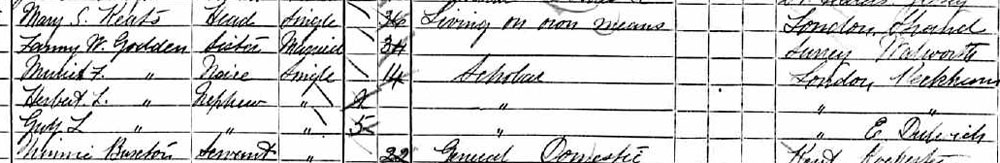 Mary S. Keats Head Single 36 Living on own means London, Strand
Fanny W. Godden Sister Married 34 Surrey Walworth
Muriel F. " Neice Single 14 Scholar London, Peckham
Herbert L. " Nephew " " " "
Guy L " " " 5 " " E. Dulwich
Minnie Servant " 22 General Domestic Kent